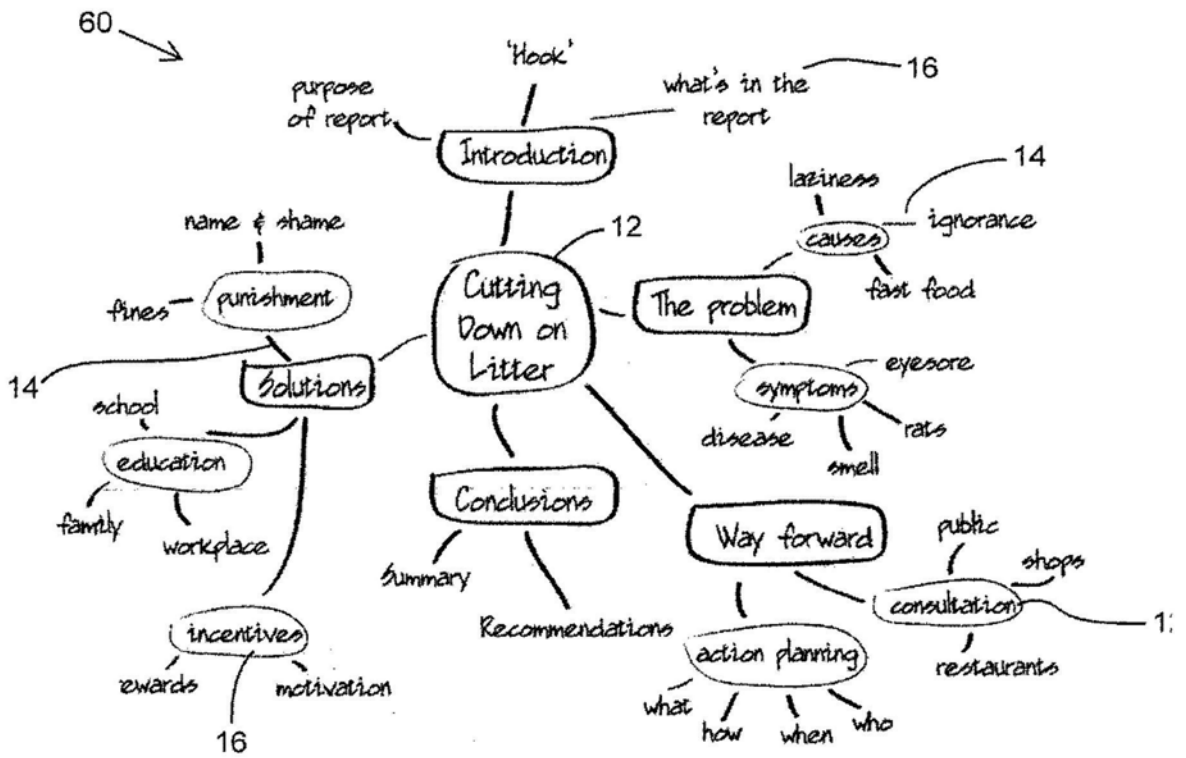 60
'Hook'
16
what's in the
report
purpose
of report
Introduction
14
laziness
ignorance
causes
fast food
name & shame
12
punishment
fines
Cutting
Down on
Litter
The problem
14
Solutions
eyesore
symptoms
rats
disease
smell
school
education
family
workplace
Conclusions
Summary
Recommendations
Way forward
public
shops
consultation
restaurants
1
incentives
ewards
motivation
16
action planning
what
how
when
who